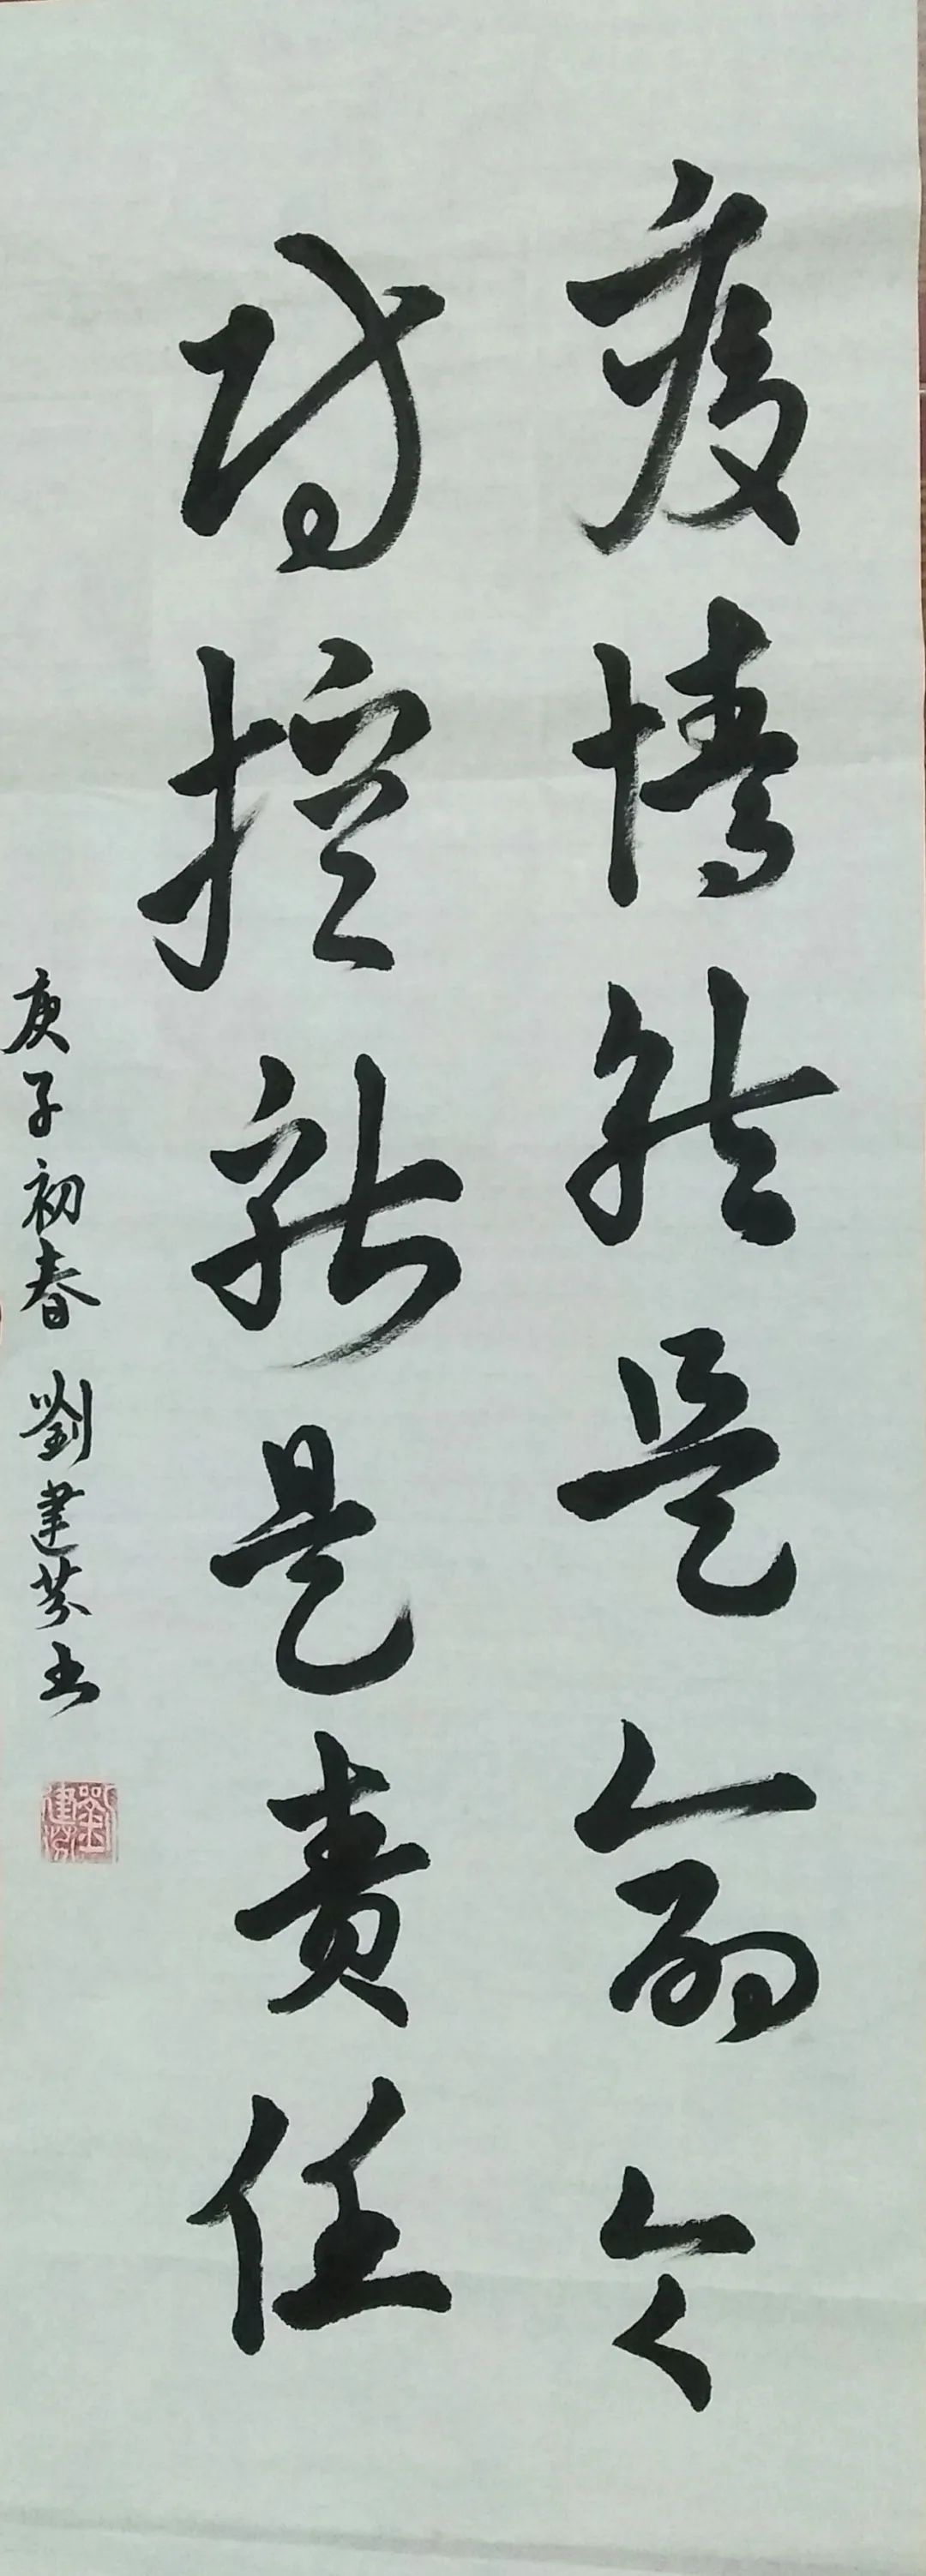 疫情就是命令
防控就是責任
庚子初春 劉建芬书
劉建芬